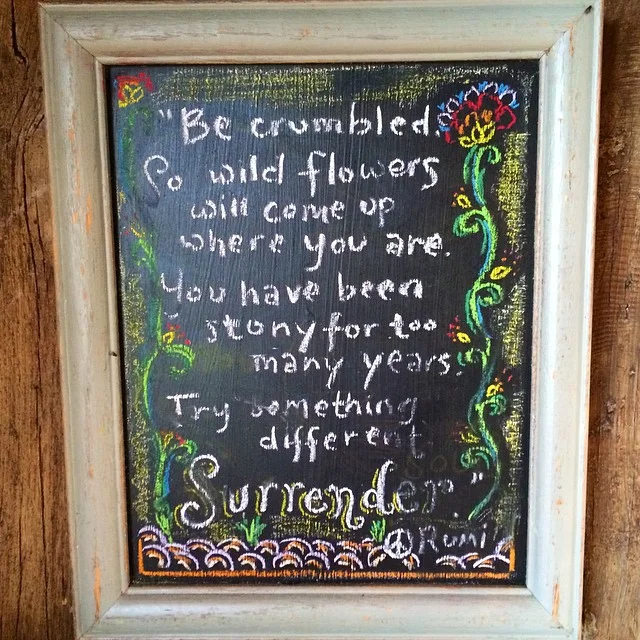 "Be crumbled.
So wild flowers
will come up
where you are.
You have been
stony for too
many years.
Try something
different.
Surrender."
Rumi